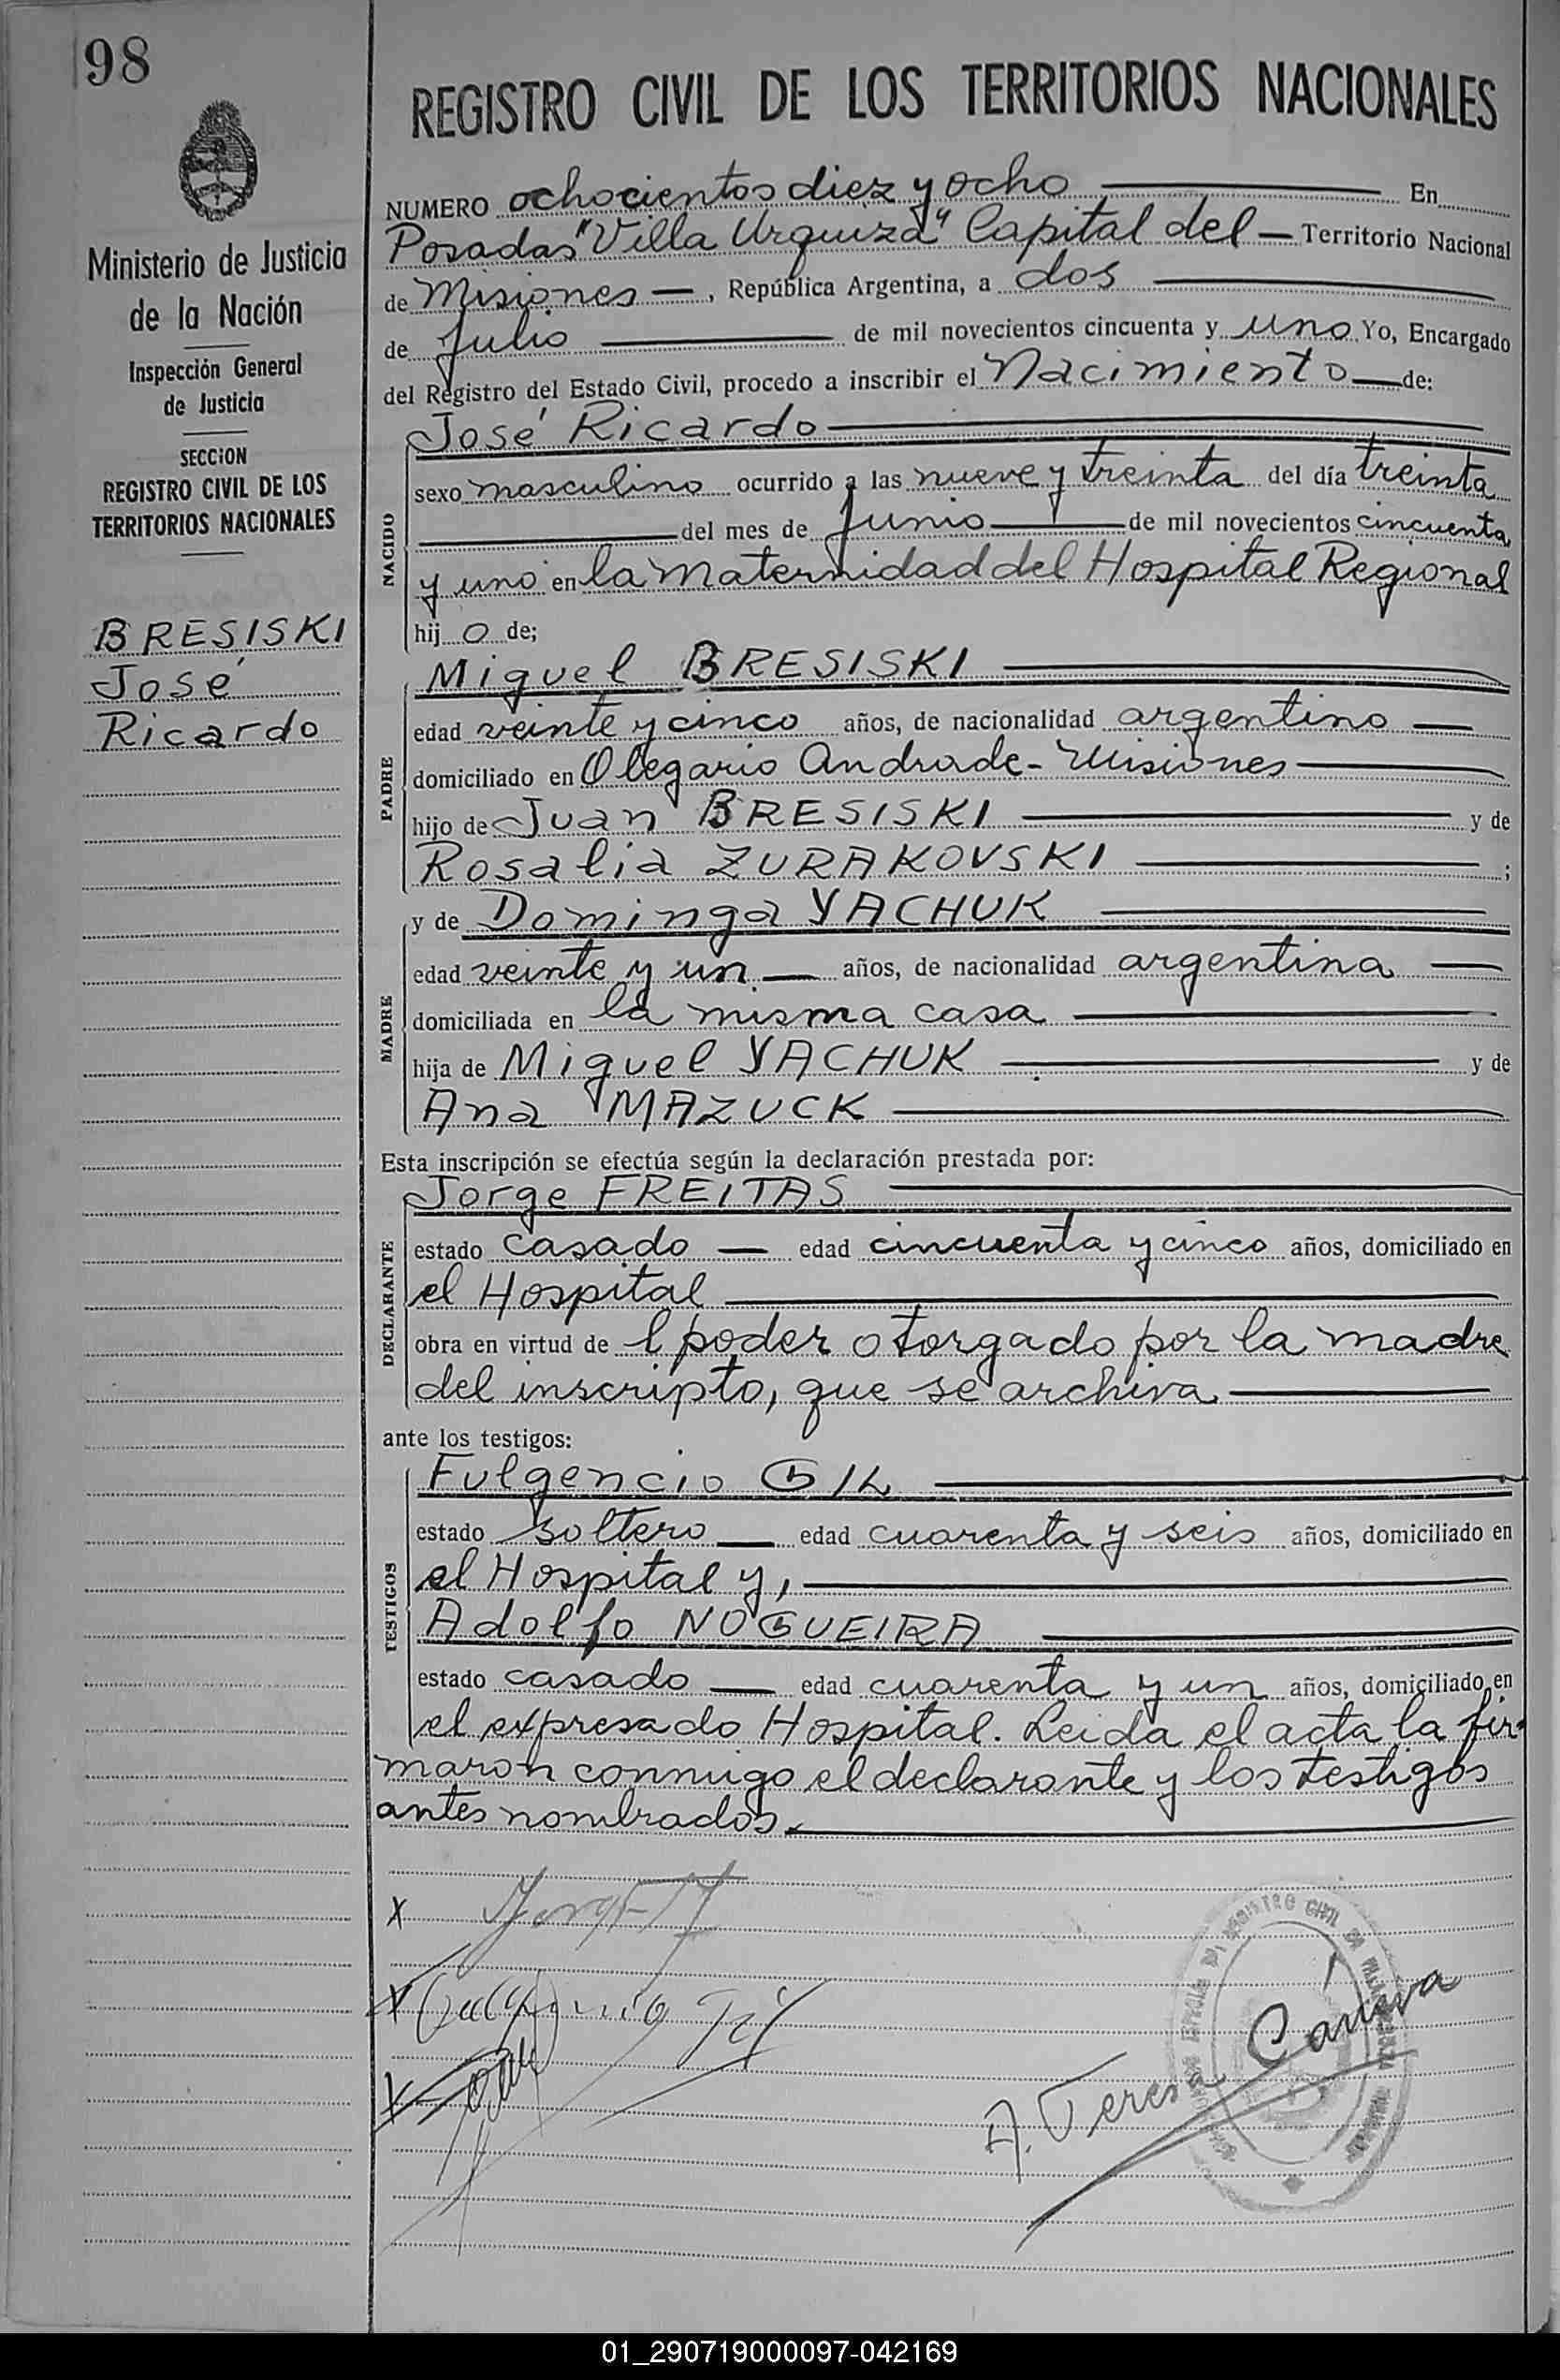 198
Ministerio de Justicia
de la Nación
Inspección General
de Justicia
SECCION
REGISTRO CIVIL DE LOS
TERRITORIOS NACIONALES
BRESISKI
José
Ricardo
REGISTRO CIVIL DE LOS TERRITORIOS NACIONALES
NUMERO ochocientos diez y ocho En
Posadas "Villa Urquiza" Capital del — Territorio Nacional
de Misiones —, República Argentina, a dos
de Julio de mil novecientos cincuenta y uno Yo, Encargado
del Registro del Estado Civil, procedo a inscribir el Nacimiento — de:
José Ricardo
NACIDO
sexo masculino ocurrido a las nueve y treinta del día treinta
del mes de Junio de mil novecientos cincuenta
y uno en la maternidad del Hospital Regional
hij o de;
Miguel BRESISKI
PADRE
edad veinte y cinco años, de nacionalidad argentino —
domiciliado en Olegario Andrade - Misiones
hijo de Juan BRESISKI y de
Rosalia ZURAKOVSKI ;
y de Dominga YACHUK
MADRE
edad veinte y un — años, de nacionalidad argentina —
domiciliada en la misma casa
hija de Miguel YACHUK y de
Ana MAZUCK
Esta inscripción se efectúa según la declaración prestada por:
Jorge FREITAS
DECLARANTE
estado casado — edad cincuenta y cinco años, domiciliado en
el Hospital
obra en virtud de l poder otorgado por la madre
del inscripto, que se archiva
ante los testigos:
Fulgencio GIL
TESTIGOS
estado soltero — edad cuarenta y seis años, domiciliado en
el Hospital y,
Adolfo NOGUEIRA
estado casado — edad cuarenta y un años, domiciliado en
el expresado Hospital. Leida el acta la fir-
maron conmigo el declarante y los testigos
antes nombrados.
X
X
X
A. Teresa
01_290719000097-042169